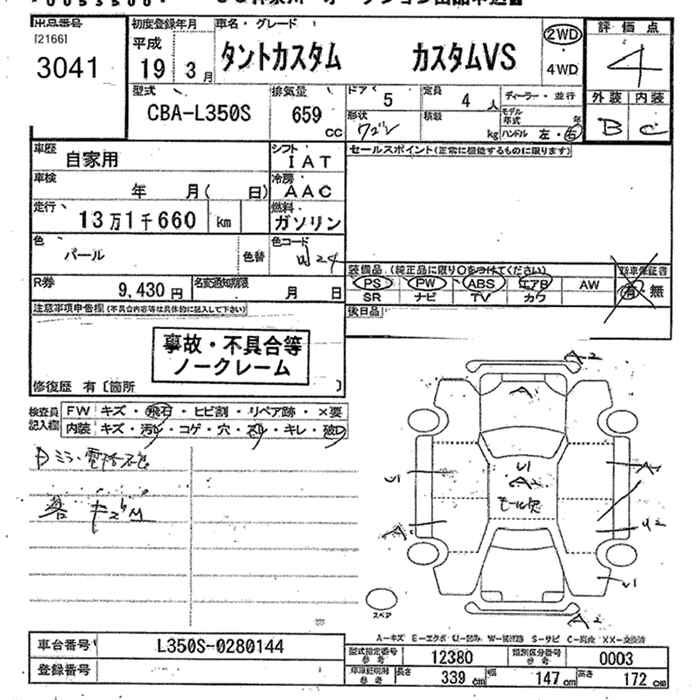 出品番号
[2166]
3041
初度登録年月
平成
19 3月
車名・グレード
タントカスタム カスタムVS
2WD
4WD
評価点
4
外装 内装
B C
型式
CBA-L350S
排気量
659 CC
ドア 5
定員 4 人
ディーラー・並行
形状 ワゴン
積載 kg
モデル年式 年
ハンドル 左・右
車歴 自家用
シフト IAT
車検 年 月( 日)
冷房 AAC
走行 13万1千660 km
燃料 ガソリン
色 パール
色替
色コード W24
R券 9,430円
名変通知期限 月 日
セールスポイント(正常に機能するものに限ります)
装備品 (純正品に限り○をつけてください)
PS PW ABS エアB AW
SR ナビ TV カワ
新車保証書
有・無
後日品
注意事項申告欄(不具合内容等は具体的に記入して下さい)
事故・不具合等
ノークレーム
修復歴 有〔箇所 〕
検査員記入欄
FW キズ・飛石・ヒビ割・リペア跡・×要
内装 キズ・汚レ・コゲ・穴・スレ・キレ・破レ
A2
A
U1
U1
A2
モール欠
A
U2
A
U1
A2
スペア
A-キズ E-エクボ U-凹み W-補修跡 S-サビ C-腐食 XX-交換済
車台番号 L350S-0280144
登録番号
型式指定番号 参考 12380
類別区分番号 参考 0003
車庫証明用 参考
長さ 339 cm
幅 147 cm
高さ 172 cm